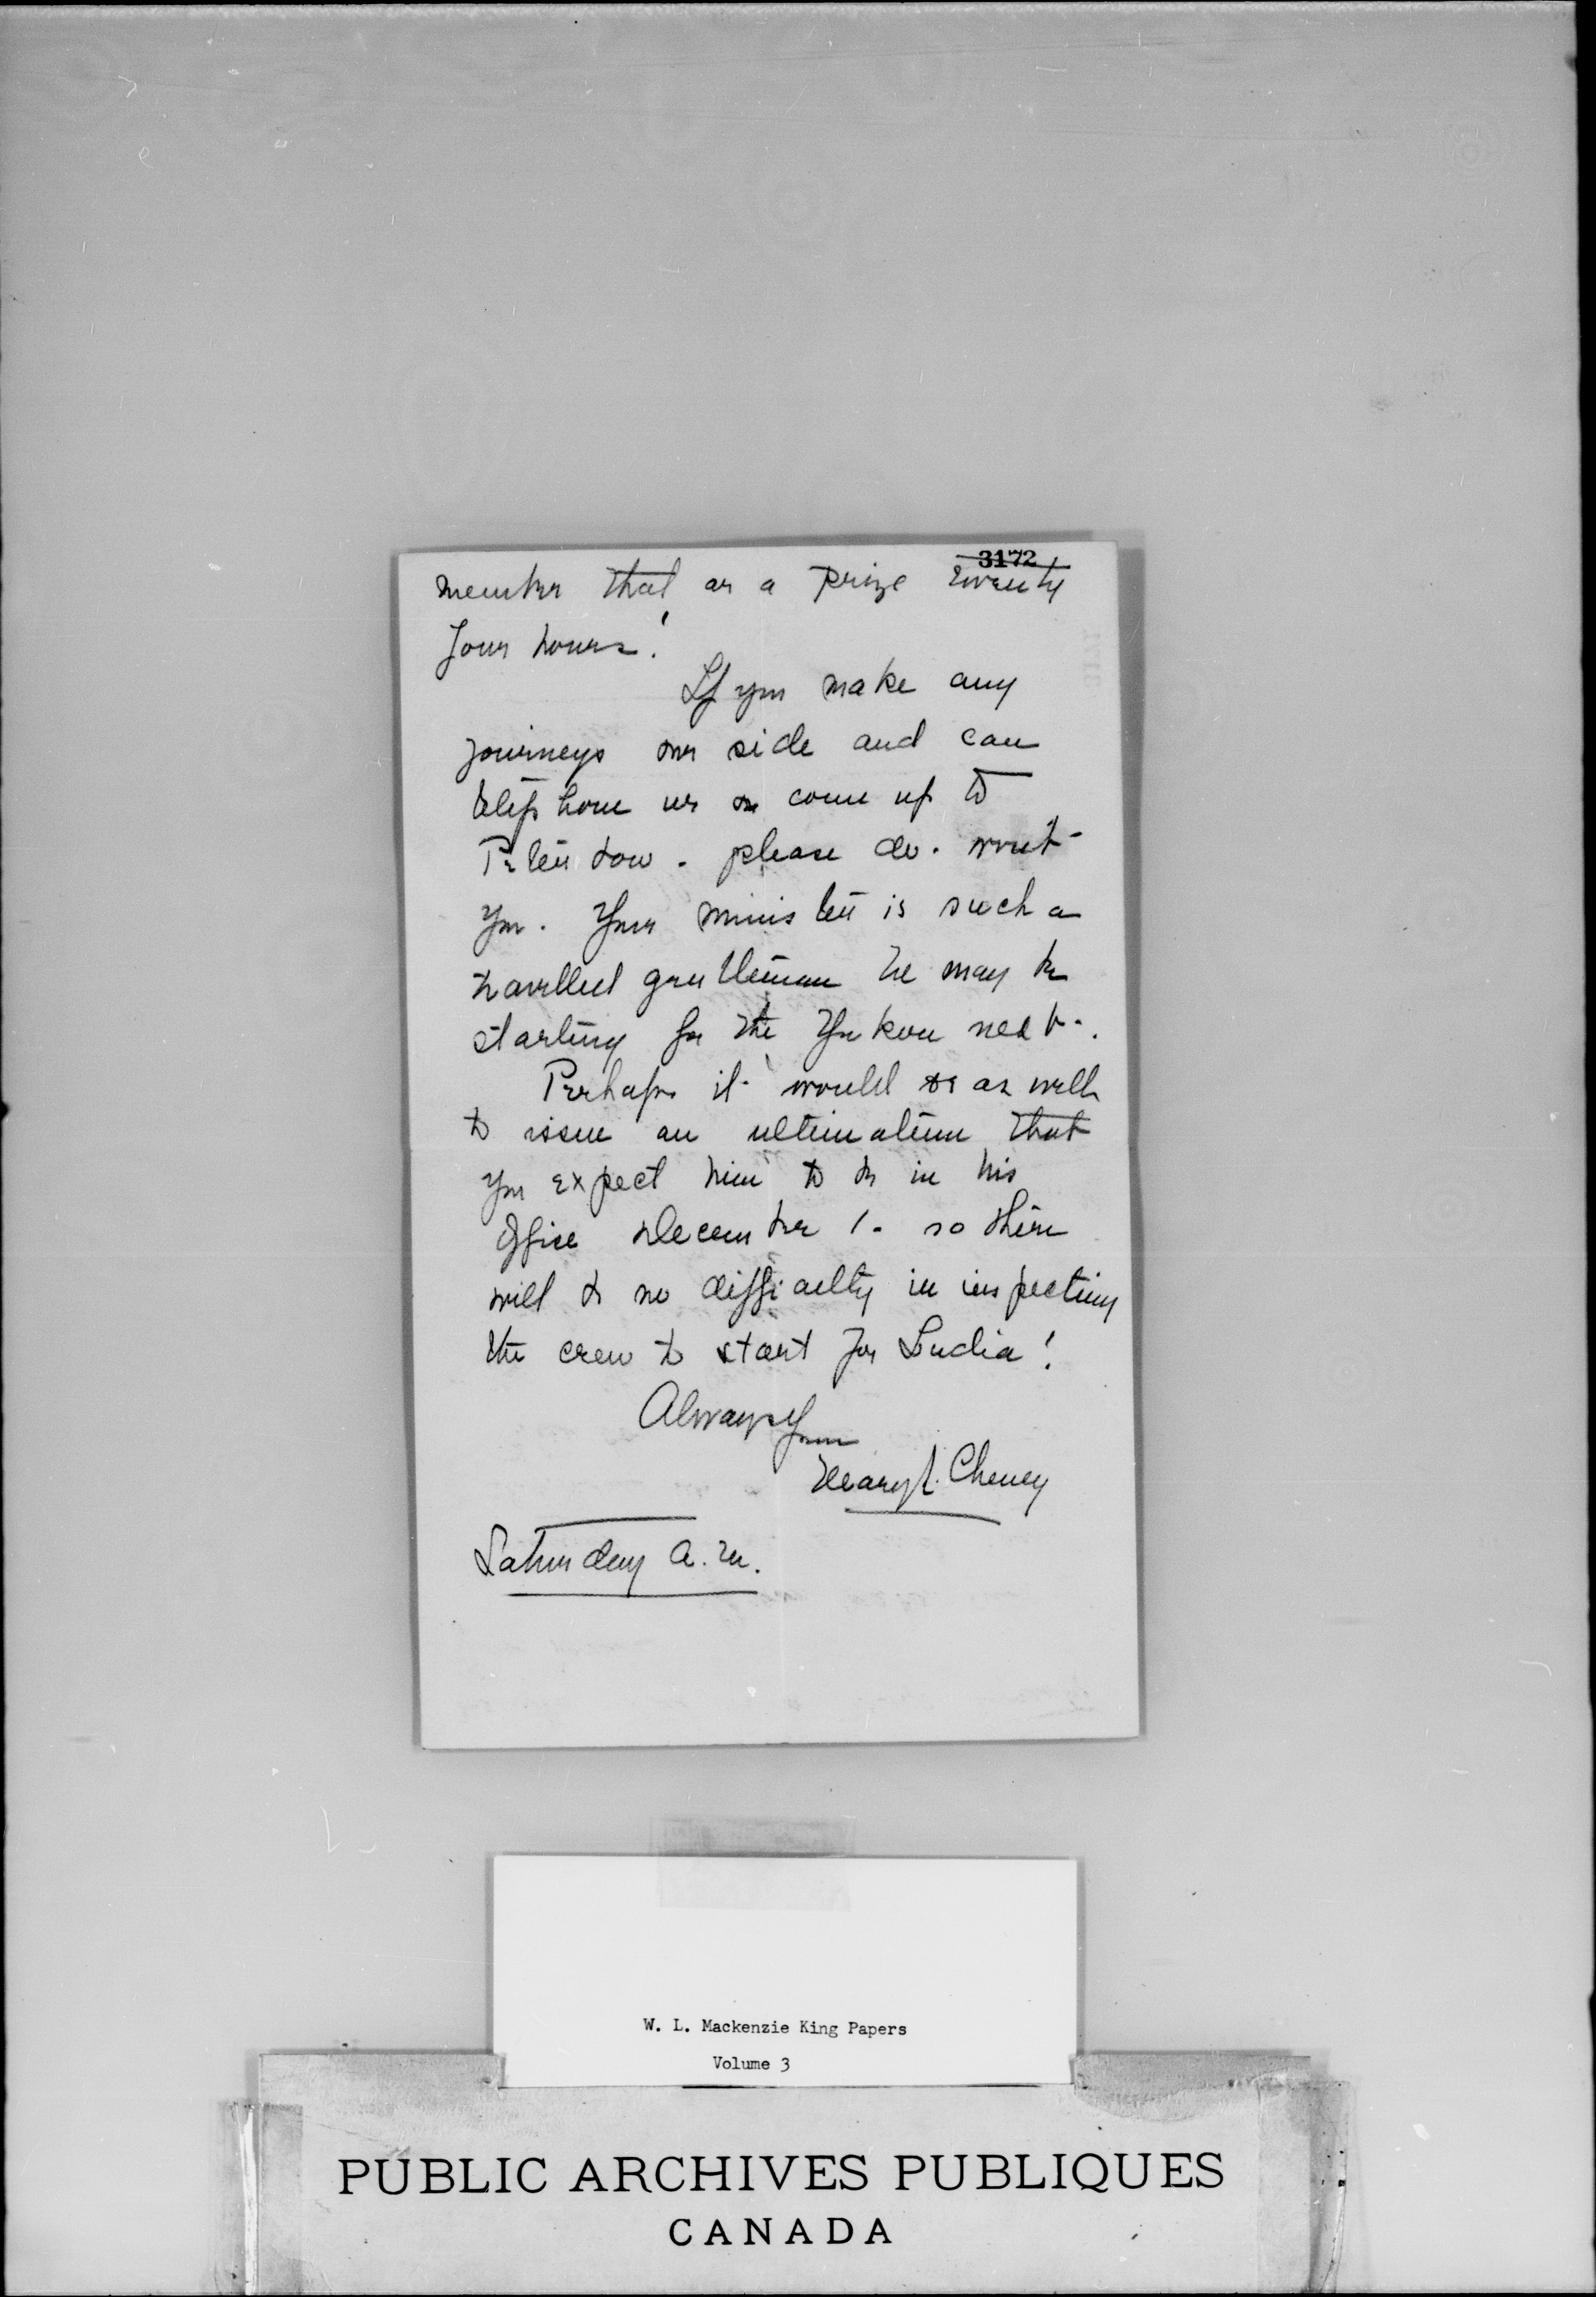 3172
member that as a prize twenty
four hours!
If you make any
journeys our side and can
telephone us or come up to
Peterboro - please do. wont
you. Your minister is such a
travelled gentleman he may be
starting for the Yukon next.
Perhaps it would be as well
to issue an ultimatum that
you expect him to be in his
office December 1. so there
will be no difficulty in inspecting
the crew to start for India!
Always Yours
Mary L. Cheney
Saturday a.m.
W. L. Mackenzie King Papers
Volume 3
PUBLIC ARCHIVES PUBLIQUES
CANADA